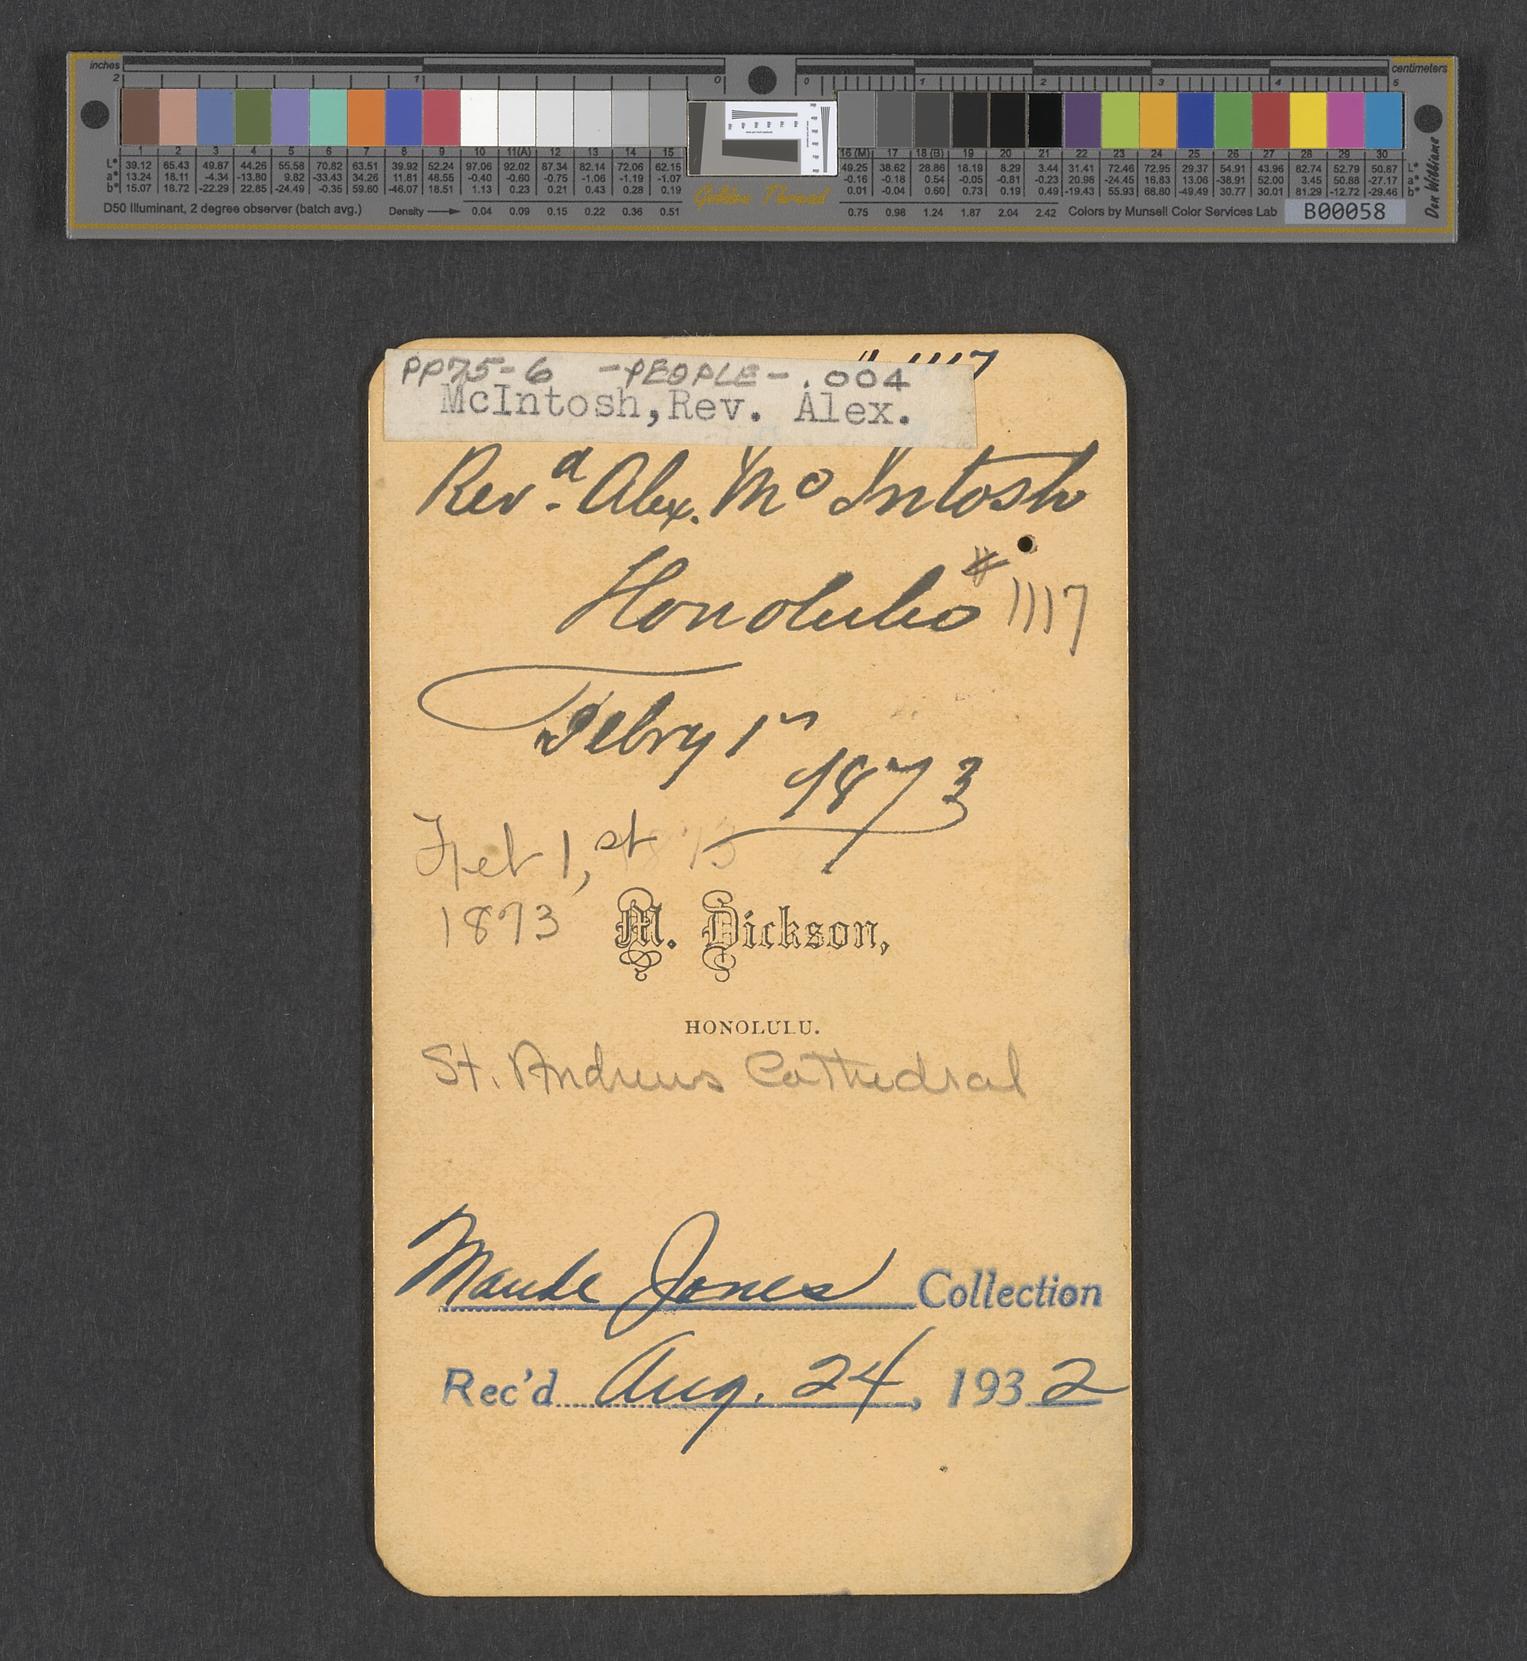 inches
centimeters
2 1 0 0 1 2 3 4 5
1 2 3 4 5 6 7 8 9 10 11(A) 12 13 14 15 16 (M) 17 18 (B) 19 20 21 22 23 24 25 26 27 28 29 30
L* 39.12 65.43 49.87 44.26 55.58 70.82 63.51 39.92 52.24 97.06 92.02 87.34 82.14 72.06 62.15 49.25 38.62 28.86 16.19 8.29 3.44 31.41 72.46 72.95 29.37 54.91 43.96 82.74 52.79 50.87 L*
a* 13.24 18.11 -4.34 -13.80 9.82 -33.43 34.26 11.81 48.55 -0.40 -0.60 -0.75 -1.06 -1.19 -1.07 -0.16 -0.18 0.54 -0.05 -0.81 -0.23 20.98 -24.45 16.83 13.06 -38.91 52.00 3.45 50.88 -27.17 a*
b* 15.07 18.72 -22.29 22.85 -24.49 -0.35 59.60 -46.07 18.51 1.13 0.23 0.21 0.43 0.28 0.19 0.01 -0.04 0.60 0.73 0.19 0.49 -19.43 55.93 68.80 -49.49 30.77 30.01 81.29 -12.72 -29.46 b*
D50 Illuminant, 2 degree observer (batch avg.) Density 0.04 0.09 0.15 0.22 0.36 0.51 Golden Thread 0.75 0.98 1.24 1.87 2.04 2.42 Colors by Munsell Color Services Lab B00058
Don Williams
# 1117
PP75-6 -PEOPLE- .004
McIntosh,Rev. Alex.
Revd. Alex. Mc Intosh
Honolulu # 1117
Febry 1st
1873
Feb 1, st
1873
M. Dickson,
HONOLULU.
St. Andrews Cathedral
Maude Jones Collection
Rec'd Aug. 24, 1932